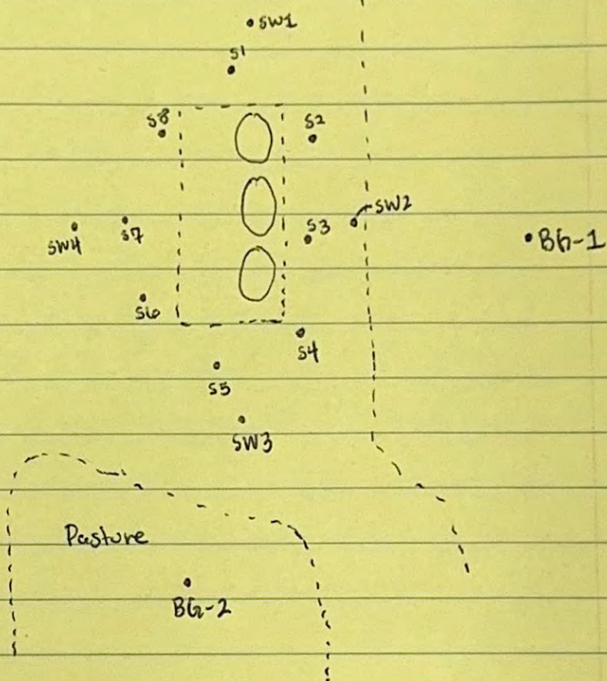 SW1
S1
S8
S2
SW2
S7
S3
SW4
BG-1
S6
S4
S5
SW3
Pasture
BG-2